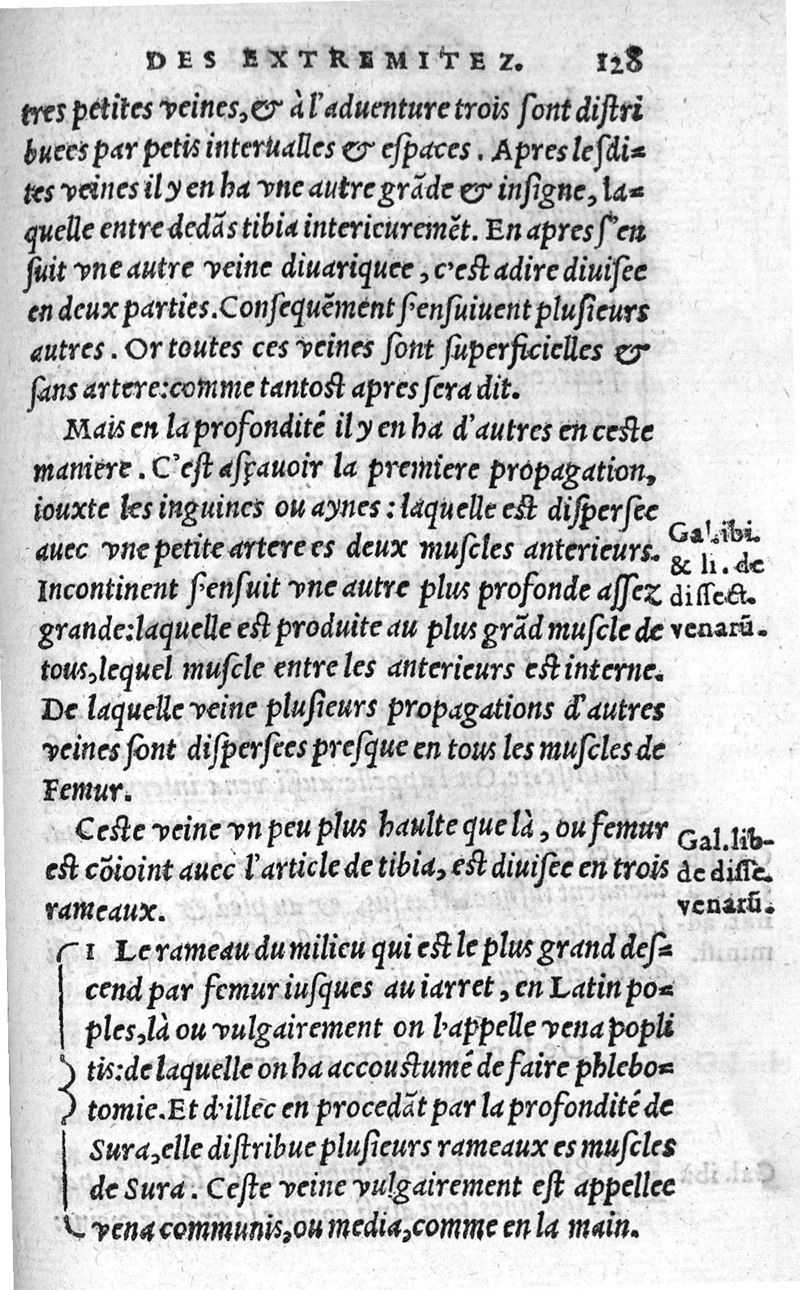 DES EXTREMITEZ. 128
tres petites veines, & à l'aduenture trois sont distri
buees par petis interualles & espaces. Apres lesdi=
tes veines il y en ha vne autre grãde & insigne, la=
quelle entre dedãs tibia interieuremẽt. En apres s'en
suit vne autre veine diuariquee, c'est adire diuisee
en deux parties. Consequẽment s'ensuiuent plusieurs
autres. Or toutes ces veines sont superficielles &
sans artere: comme tantost apres sera dit.
Mais en la profondité il y en ha d'autres en ceste
maniere. C'est asçauoir la premiere propagation,
iouxte les inguines ou aynes: laquelle est dispersee
auec vne petite artere es deux muscles anterieurs.
Incontinent s'ensuit vne autre plus profonde assez
grande: laquelle est produite au plus grãd muscle de
tous, lequel muscle entre les anterieurs est interne.
De laquelle veine plusieurs propagations d'autres
veines sont dispersees presque en tous les muscles de
Femur.
Gal. ibi.
& li. de
dissect.
venarũ.
Ceste veine vn peu plus haulte que là, ou femur
est cõioint auec l'article de tibia, est diuisee en trois
rameaux.
Gal. lib-
de disse.
venarũ.
1 Le rameau du milieu qui est le plus grand des=
cend par femur iusques au iarret, en Latin po=
ples, là ou vulgairement on l'appelle vena popli
tis: de laquelle on ha accoustumé de faire phlebo=
tomie. Et d'illec en procedãt par la profondité de
Sura, elle distribue plusieurs rameaux es muscles
de Sura. Ceste veine vulgairement est appellee
vena communis, ou media, comme en la main.